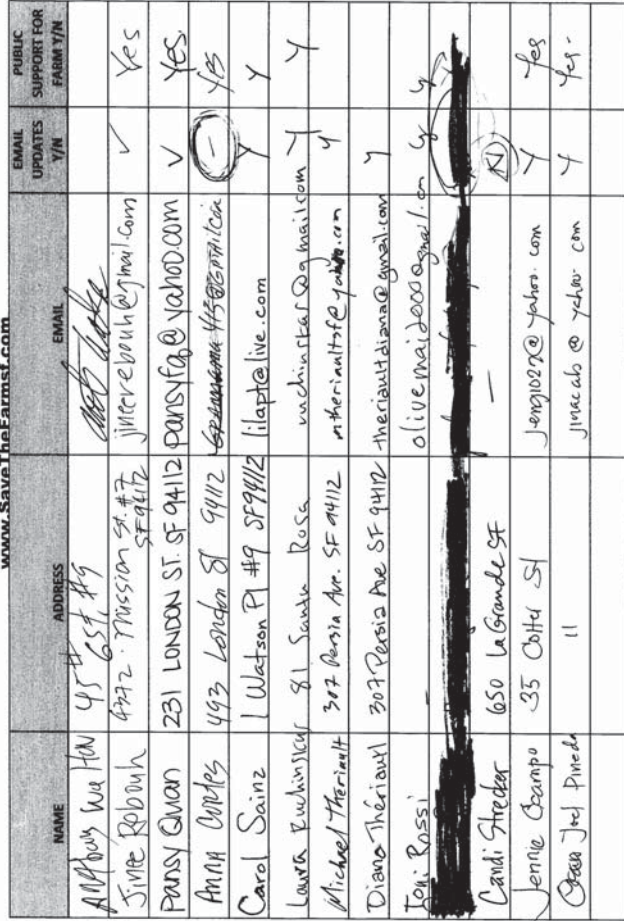 www.SaveTheFarmsf.com
NAME ADDRESS EMAIL EMAIL UPDATES Y/N PUBLIC SUPPORT FOR FARM Y/N
Anthony Walton 45# 6st #9
Jinee Rebouh 4372 Mission St. #7 SF 94112 jineerebouh@gmail.com ✓ Yes
Pansy Quan 231 LONDON ST. SF 94112 pansyfq@yahoo.com ✓ Yes.
Anna Cortes 493 London ST 94112 - yes
Carol Sainz 1 Watson Pl #9 SF 94112 lilapt@live.com Y Y
Laura Ruchinskas 81 Santa Rosa ruchinskas@gmail.com Y Y
Michael Theriault 307 Persia Ave. SF 94112 mtheriaultsf@yahoo.com Y
Diana Theriault 307 Persia Ave SF 94112 theriaultdiana@gmail.com Y
Toni Rossi - olivemail2000@gmail.com y y
Candi Strecker 650 La Grande SF - N
Jennie Ocampo 35 Cotter St jeng1023@yahoo.com Y Yes
Joel Pineda " jmacab@yahoo.com Y Yes-